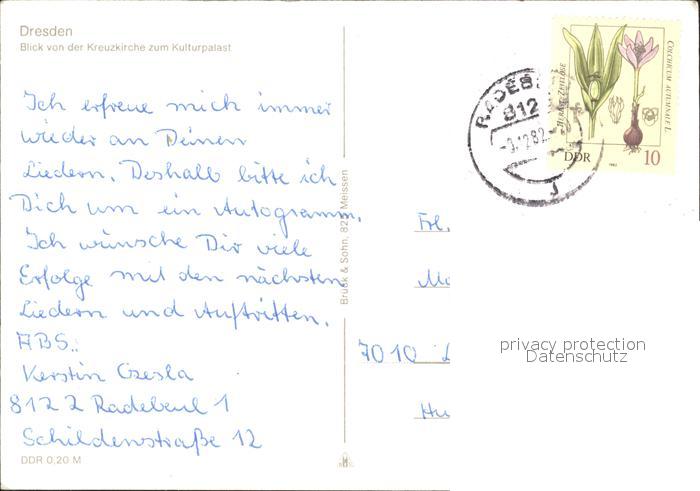 Dresden
Blick von der Kreuzkirche zum Kulturpalast
Ich erfreue mich immer
wieder an Deinen
Liedern. Deshalb bitte ich
Dich um ein Autogramm.
Ich wünsche Dir viele
Erfolge mit den nächsten
Liedern und Auftritten.
ABS.:
Kerstin Czesla
8122 Radebeul 1
Schildenstraße 12
DDR 0,20 M
Brück & Sohn, 825 Meissen
RADEB
812
82
HERBSTZEITLOSE
COLCHICUM AUTUMNALE L.
DDR
1982
10
Frl.
7010
privacy protection
Datenschutz